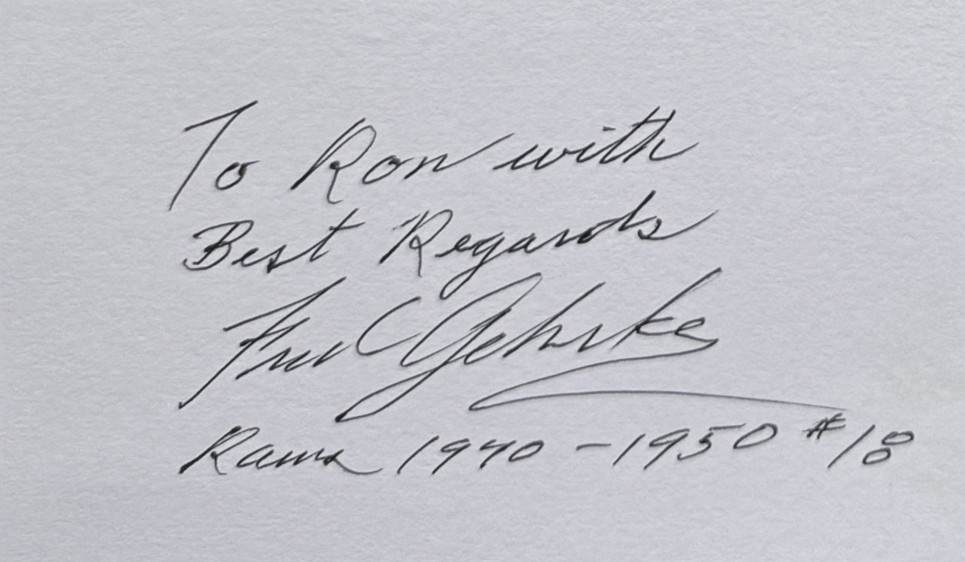 To Ron with
Best Regards
Fred Gehrke
Rams 1940 - 1950 #18